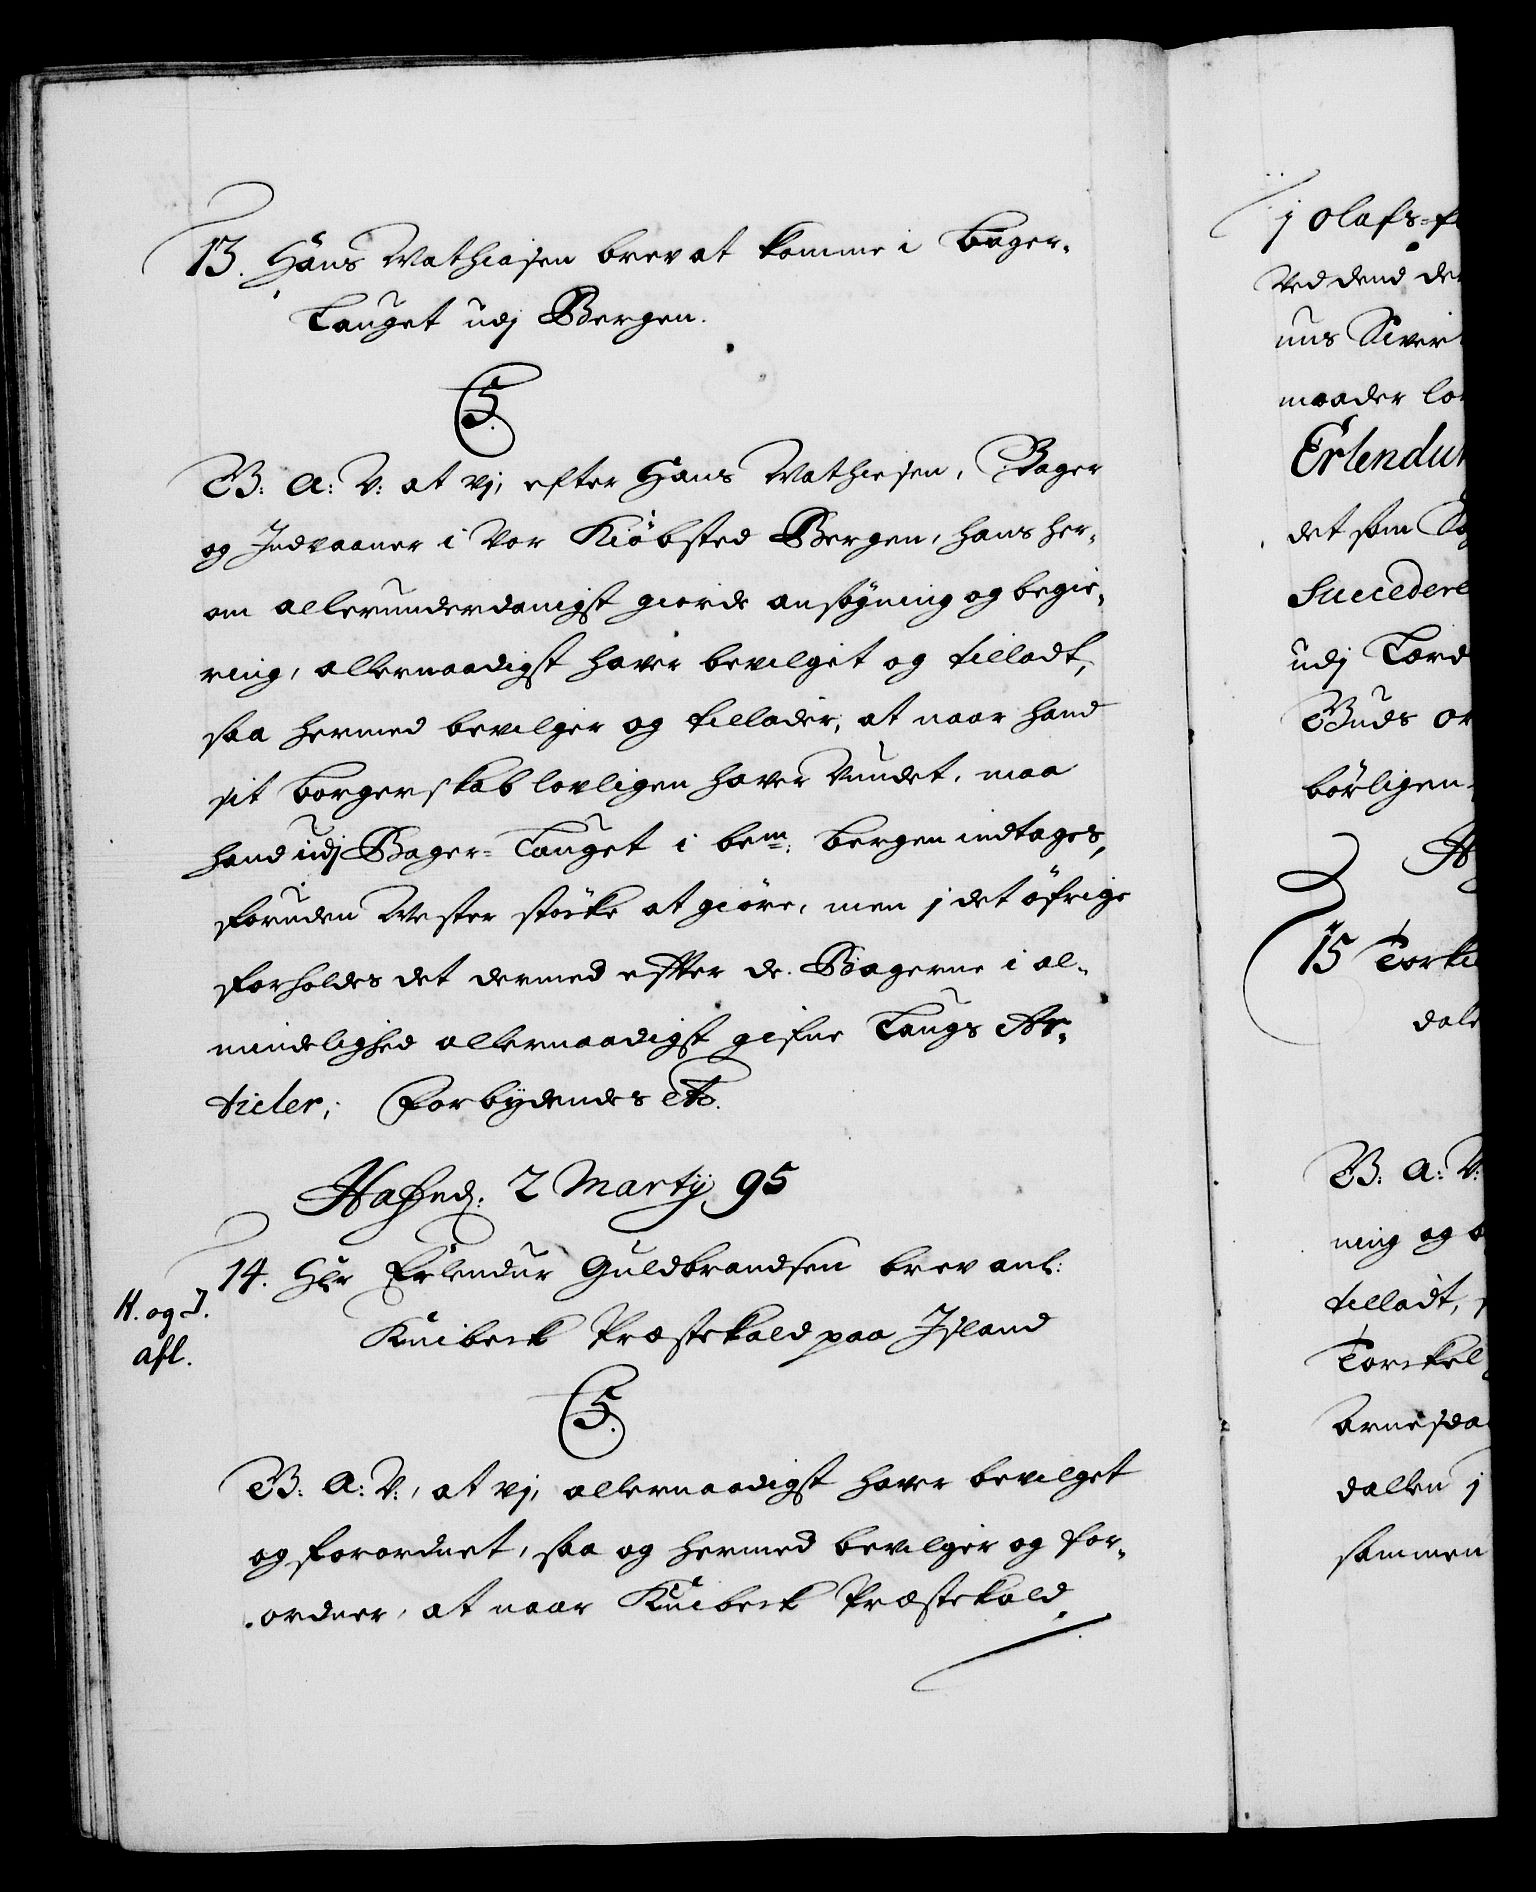 13. Hans Mathiesen brev at komme i Bager-
Lauget udj Bergen.
C5.
B: A: V: at vj, efter Hans Mathiesen, Bager
og Indvaaner i Vor Kiöbsted Bergen, hans her-
om allerunderdanigst giorde ansögning og begie-
ring, allernaadigst haver bevilget og tilladt,
saa hermed bevilger og tillader, at naar hand
sit borgerskab lovligen haver Vundet, maa
hand udj Bager-Lauget i bem: Bergen indtages,
foruden Mester stöcke at giöre, men j det öfrige
forholdes det dermed effter de Bagerne i al-
mindelighed allernaadigst gifne Laugs Ar-
ticler; Forbÿdendes etc.
Hafned: 2 Martij 95
14. Hr Erlendur Guldbrandsen brev anl:
K. og I.
afl.
Knibeck Præstekald paa Island
C5.
B: A: V:, at vj, allernaadigst haver bevilget
og forordnet, saa og hermed bevilger og for-
ordner, at naar Knibeck Præstekald
j Olafs-f
Ved dend de
uus Siver
maader lo
Erlendur
det som So
Succedere
udj
Buds or
börligen
15 Torke
dal
B: A: V:
ning og b
tilladt, s
Torckel
Arnesda
dallen j
sammen